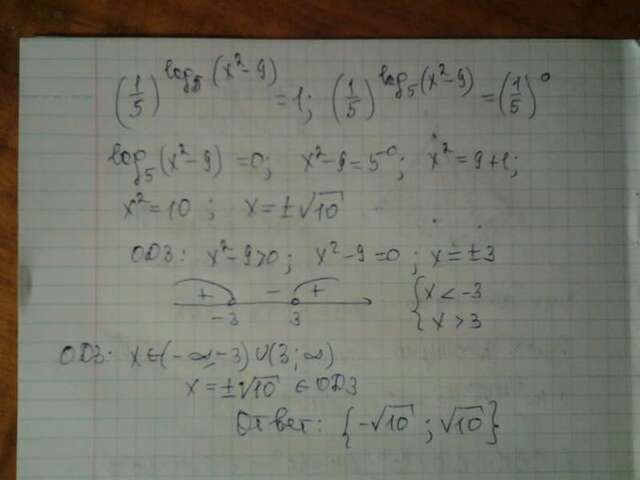 (1/5)^log₅(x²-9) = 1; (1/5)^log₅(x²-9) = (1/5)^0
log₅(x²-9) = 0; x²-9 = 5^0; x² = 9+1;
x² = 10; x = ±√10
ОДЗ: x²-9>0; x²-9=0; x=±3
+ - + { x < -3
-3 3 x > 3
ОДЗ: x∈(-∞;-3)∪(3;∞)
x = ±√10 ∈ ОДЗ
Ответ: {-√10; √10}